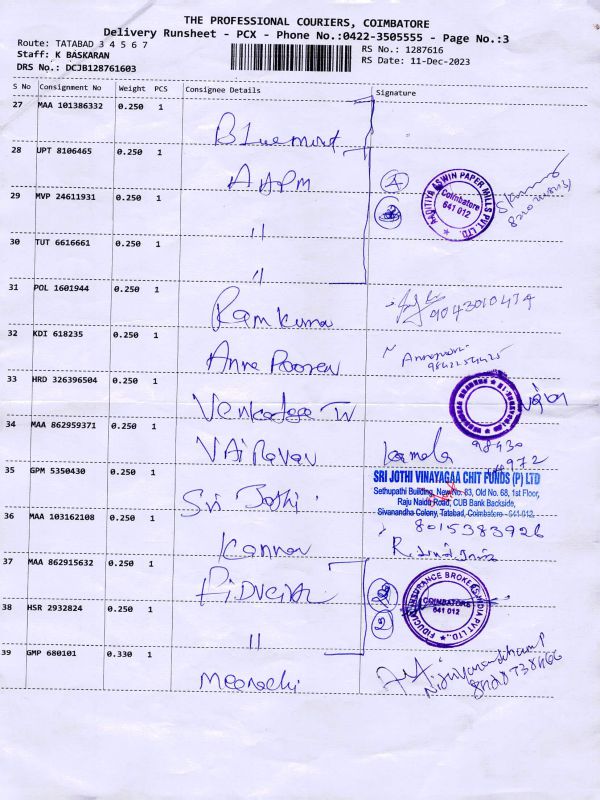 THE PROFESSIONAL COURIERS, COIMBATORE
Delivery Runsheet - PCX - Phone No.:0422-3505555 - Page No.:3
Route: TATABAD 3 4 5 6 7
RS No.: 1287616
Staff: K BASKARAN
RS Date: 11-Dec-2023
DRS No.: DCJB128761603
S No Consignment No Weight PCS Consignee Details Signature
27 MAA 101386332 0.250 1
Bluemint
28 UPT 8106465 0.250 1
AAPM
29 MVP 24611931 0.250 1
AADITIYA ASWIN PAPER MILLS PVT. LTD.
Coimbatore
641 012
"
30 TUT 6616661 0.250 1
"
31 POL 1601944 0.250 1
Ramkuma
9043010474
32 KDI 618235 0.250 1
Anna Pooren
33 HRD 326396504 0.250 1
34 MAA 862959371 0.250 1
VAiRavan
Kamala
98430
35 GPM 5350430 0.250 1
Sri Jothi
SRI JOTHI VINAYAGAA CHIT FUNDS (P) LTD
Sethupathi Building, New No. 83, Old No. 68, 1st Floor,
Raju Naidu Road, CUB Bank Backside,
Sivanandha Colony, Tatabad, Coimbatore - 641 012.
8015383926
36 MAA 103162108 0.250 1
Kannan
37 MAA 862915632 0.250 1
FIDUCIA INSURANCE BROKERS INDIA PVT LTD.,
COIMBATORE
641 012
38 HSR 2932824 0.250 1
"
39 GMP 680101 0.330 1
Meenachi